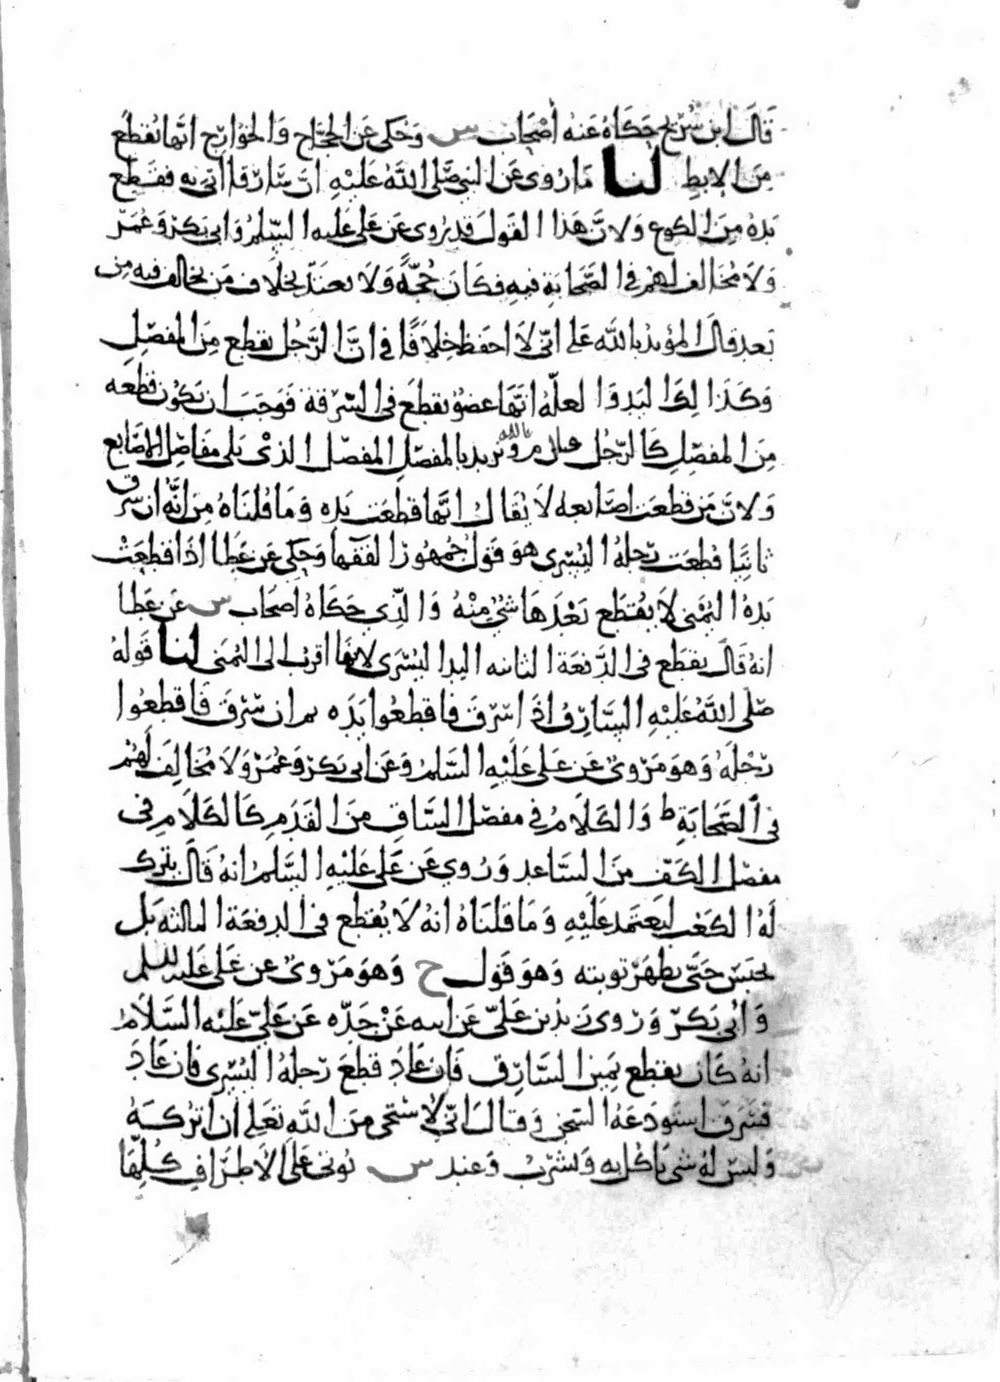 قَالَ ابن سُرَيج حَكَاهُ عَنهُ أصْحَاب س وَحُكى عَن الحجَّاج وَالخوَارِج انّها تُقطع
مِنَ الإبطِ لنا مَا رُوىَ عَن النبى صَلّى اللَّهُ عَليْهِ انَّ سَارقا اتى به فقطع
يَدهُ مِنَ الكوع وَلانَّ هَذا القولَ قد رُوى عَن على عَليه السّلمُ وَابى بَكرٍ وَعُمَرَ
وَلَا مُخالف لهم فى الصَّحَابَةِ فيهِ فكَانَ حُجّةً وَلَا يعتدّ بخلَاف مَن يخالف فيه مِن
بَعد قالَ المؤيد باللَّه عَلى انى لَا احفظ خلافًا فى انَّ الرّجُل يقطع مِنَ المفصِل
وَكَذَا لِكَ اليَد وَالعلّةُ انَّهَا عضوٌ يقطعَ فى السّرقة فَوَجَبَ ان يَكُون قطعه
مِنَ المفصِل كَالرِّجُل قال م باللَّه وَنُريد بالمفصِل المفصل الذىْ يَلى مفَاصِل الاصَابع
وَلانَّ مَن قطعَت اصَابعه لَا يُقَالُ انّها قطعَت يَده وَمَا قُلنَاهُ مِنَ انَّهُ ان سَرق
ثانيًا قطعَت رِجلهُ اليُسْرى هوَ قَولُ جُمهُور الفقَهآ وَحكى عَن عَطا اذَا قطعَتْ
يَدهُ اليُمنى لَا يقتطَع بَعْدَهَا شىٌ مِنْهُ وَالّذِى حَكَاهُ اصحَاب س عَن عَطا
انهُ قَالَ يقطع فى الدّفعَة الثانيه اليد اليُسْرَى لانّها اقربُ الى اليُمنى لنا قَولهُ
صَلّى اللَّهُ عَليْهِ السَّارِقُ اذَا سَرَقَ فَاقطعُوا يَدَه ثم ان سَرَقَ فَاقطعُوا
رِجْلَهُ وَهوَ مَرْوىٌ عَن عَلى عَلَيْهِ السَّلمُ وَعَن ابى بَكرٍ وَعُمَرَ وَلَا مُخالِفَ لَهُم
فى الصَّحَابَةِ ط وَالكَلَامُ فى مفصَل السَّاقِ مِنَ القَدَمِ كَالكَلَامِ فى
مفصَل الكَفّ مِنَ السَّاعدِ وَرُوى عَن عَلى عَليْهِ السَّلمُ انهُ قَالَ يترك
لَهُ الكَعْب ليَعتَمد عَلَيْهِ وَمَا قلنَاهُ انهُ لَا يُقطع فى الدفعَة الثالثه بَل
يحبَس حَتّى يظهَرَ توبته وَهوَ قَول ح وَهوَ مَرْوىٌ عن عَلى عَليه السلم
وَابى بَكرٍ وَرَوى زَيدُ بن عَلىّ عَن ابيه عَنْ جَدّه عَن عَلىّ عَليْه السَّلَامُ
انهُ كَانَ يقطع يَمين السَّارِق فَان عَادَ قطعَ رِجلهُ اليُسْرى فَان عَادَ
فسَرَقَ استودَعَهُ السّجن وَقالَ انّى لَاسْتَحى مِنَ اللَّه تعَالى ان اترُكهُ
وَليْسَ لهُ شى يَاكُل به وَيشْربُ وَعند س يُوتى عَلَى الاَطرَافِ كُلِّهَا